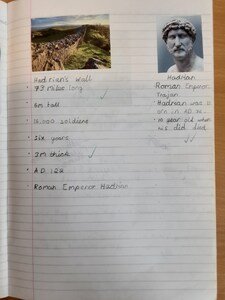 Hadrian's Wall
73 miles long
6m tall
15,000 soldiers
Six years
3m thick
A.D 122
Roman Emperor Hadrian
Hadrian
Roman Emperor
Trajan.
Hadrian was b
orn in AD 76
10 year old when
his did died